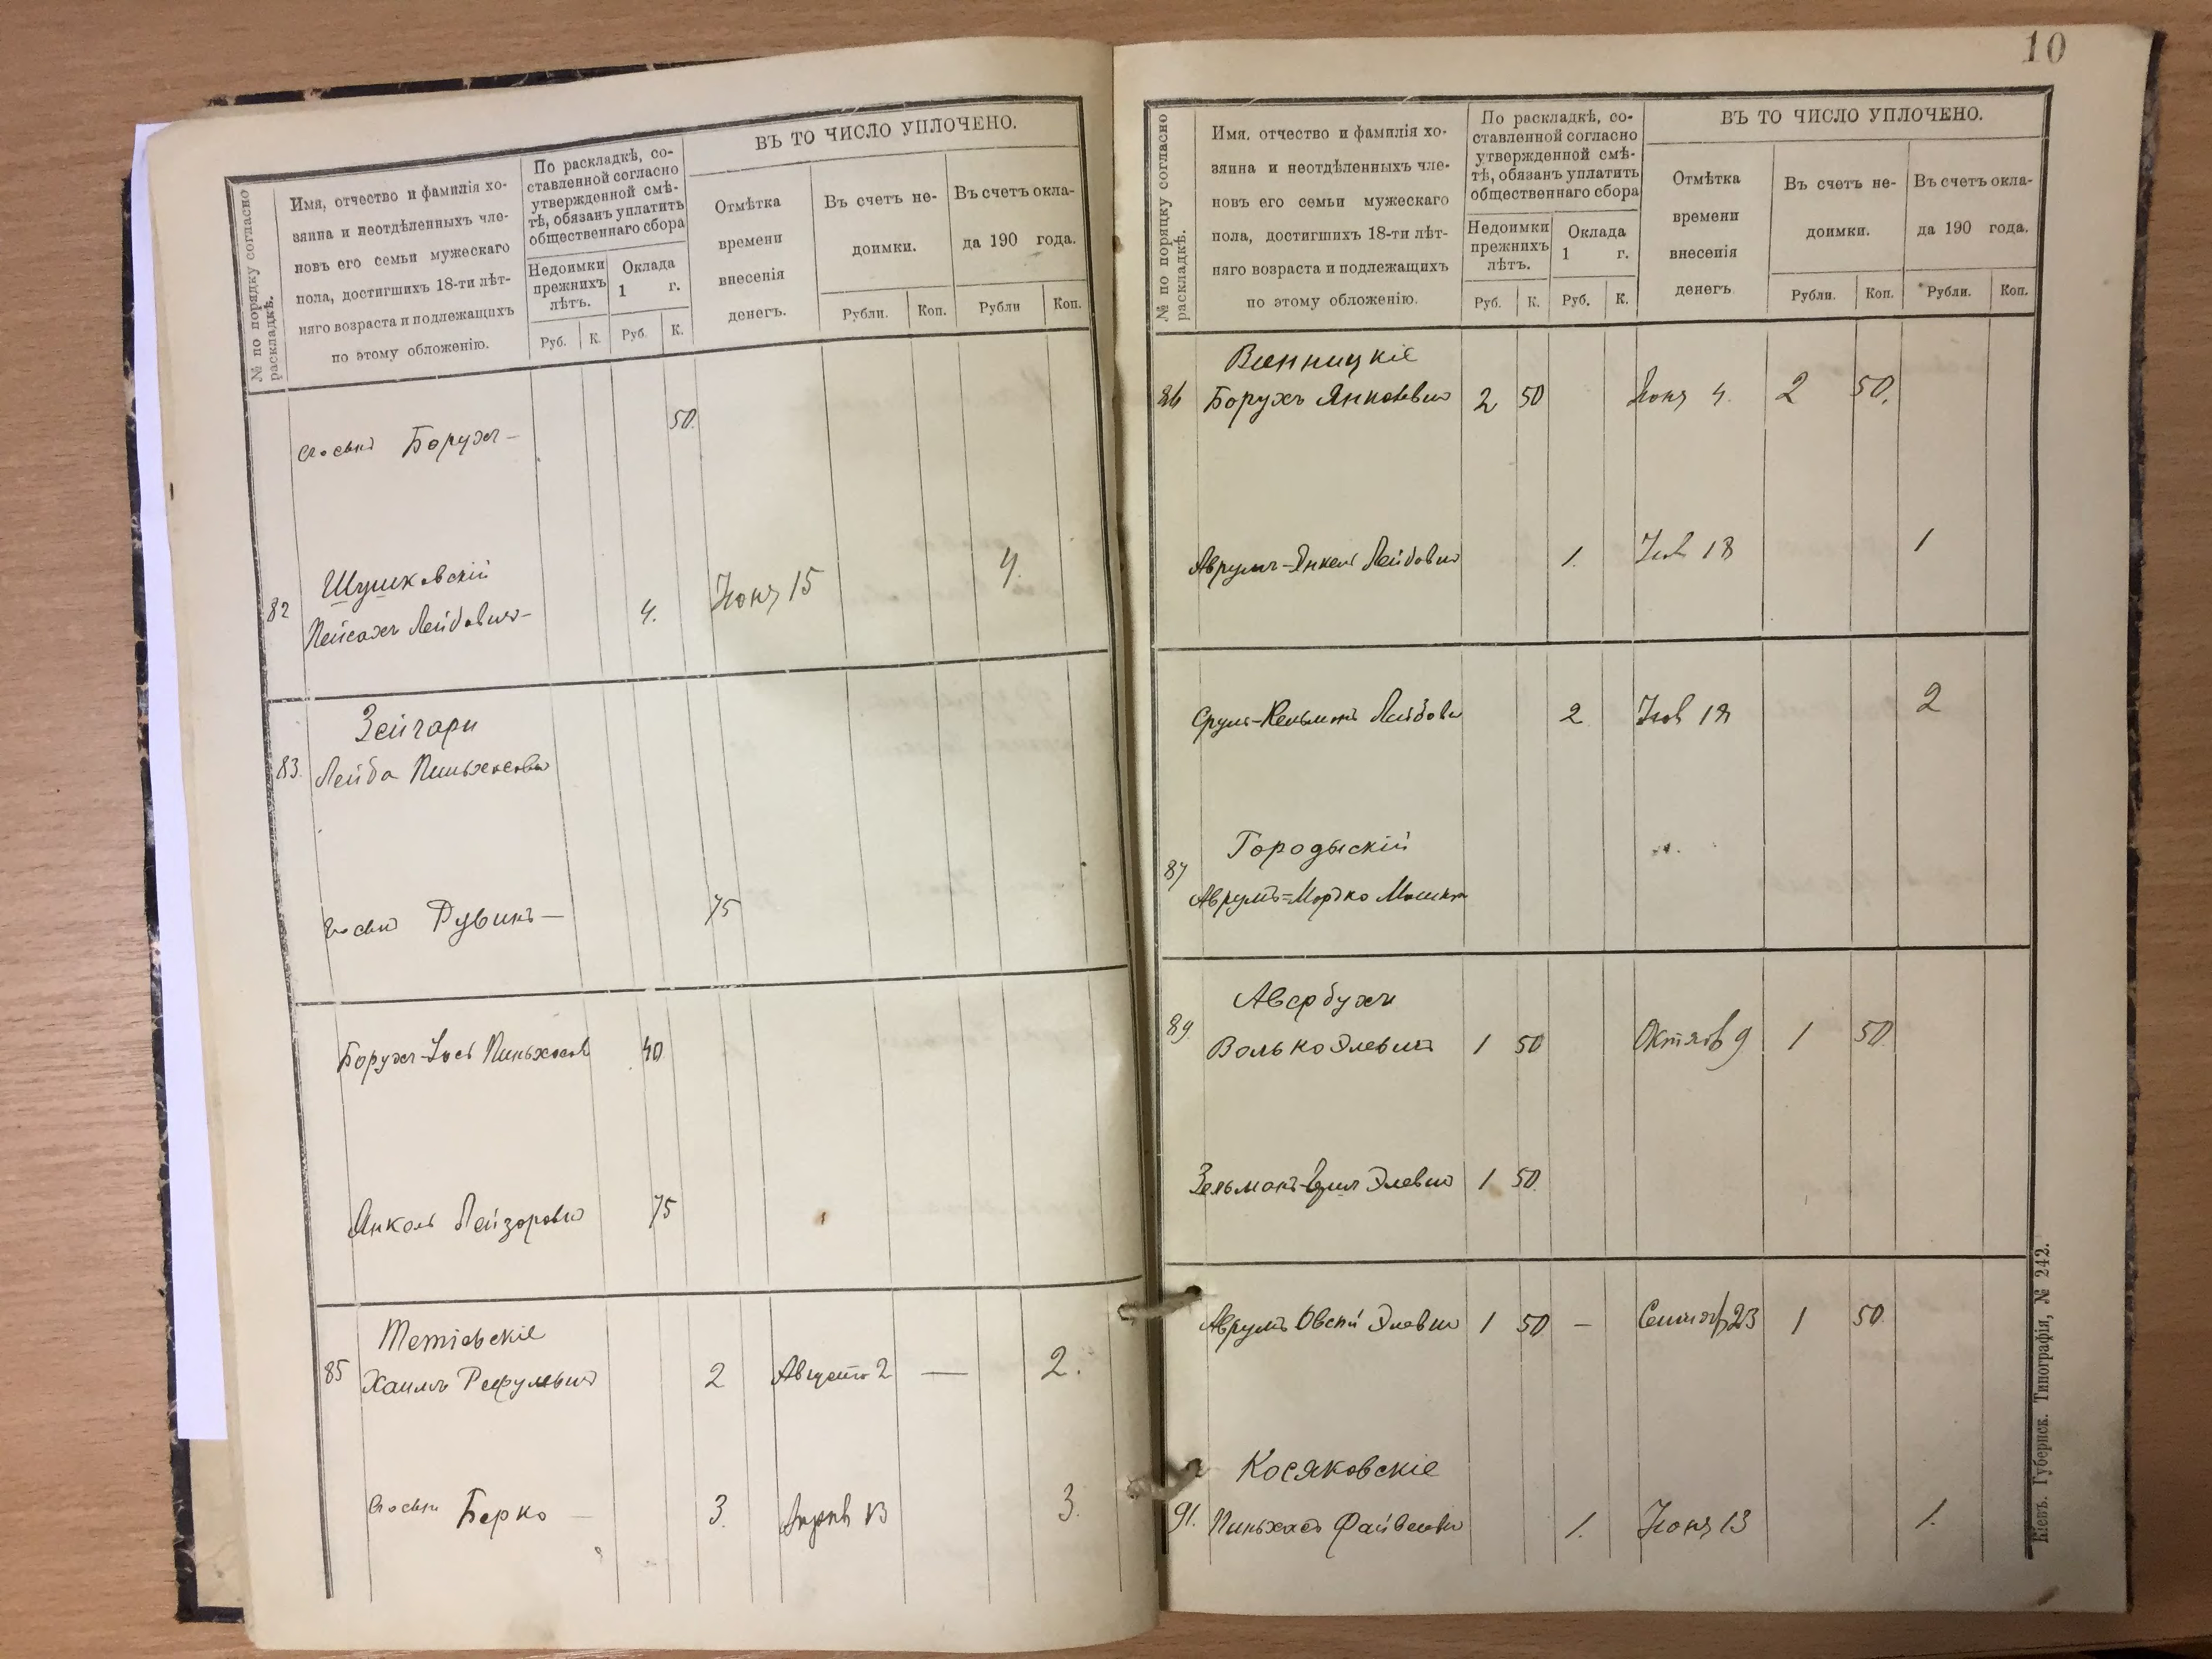 ВЪ ТО ЧИСЛО УПЛОЧЕНО.
№ по порядку согласно
раскладкѣ.
Имя, отчество и фамилія хо-
зяина и неотдѣленныхъ чле-
новъ его семьи мужескаго
пола, достигшихъ 18-ти лѣт-
няго возраста и подлежащихъ
по этому обложенію.
По раскладкѣ, со-
ставленной согласно
утвержденной смѣ-
тѣ, обязанъ уплатить
общественнаго сбора
Недоимки
прежнихъ
лѣтъ.
Оклада
1 г.
Руб. К. Руб. К.
Отмѣтка
времени
внесенія
денегъ.
Въ счетъ не-
доимки.
Рубли. Коп.
Въ счетъ окла-
да 190 года.
Рубли Коп.
Борухъ — 50.
82 Шушковскій
Пейсахъ Лейбовичъ — 4. Іюня 15 4.
83. Зейгари
Лейба Пиньхасовъ
Рувинъ — 75
Борухъ-Іось Пиньхасов 40
Янкель Лейзоровъ 75
85 Тетіевскіе
Хаимъ Рефулевичъ 2 Августа 2 — 2.
Берко — 3. Апрѣл 13 3.
10
ВЪ ТО ЧИСЛО УПЛОЧЕНО.
№ по порядку согласно
раскладкѣ.
Имя, отчество и фамилія хо-
зяина и неотдѣленныхъ чле-
новъ его семьи мужескаго
пола, достигшихъ 18-ти лѣт-
няго возраста и подлежащихъ
по этому обложенію.
По раскладкѣ, со-
ставленной согласно
утвержденной смѣ-
тѣ, обязанъ уплатить
общественнаго сбора
Недоимки
прежнихъ
лѣтъ.
Оклада
1 г.
Руб. К. Руб. К.
Отмѣтка
времени
внесенія
денегъ.
Въ счетъ не-
доимки.
Рубли. Коп.
Въ счетъ окла-
да 190 года.
Рубли. Коп.
86 Винницкіе
Борухъ Янкелевич 2 50 Іюня 4. 2 50.
Аврумъ-Янкель Лейбович 1. 18 1
Сруль-Кельманъ Лейбови 2 18 2
87 Городыскій
Аврумъ=Мордко Мошков
89. Авербухъ
Волько Элевич 1 50 Октяб 9 1 50
Зельманъ Элевич 1 50.
Аврумъ Овсей Элевич 1 50 — Сентяб 23 1 50
91. Косяковскіе
Пиньхасъ Файвелев 1. Іюня 13 1.
Кіевъ. Губернск. Типографія, № 242.